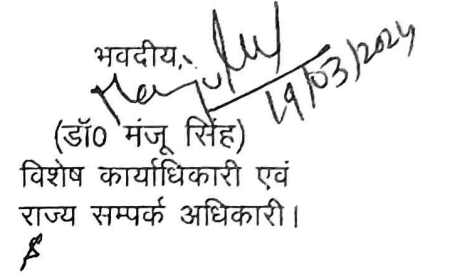 भवदीय,
19/03/2024
(डॉ0 मंजू सिंह)
विशेष कार्याधिकारी एवं
राज्य सम्पर्क अधिकारी।